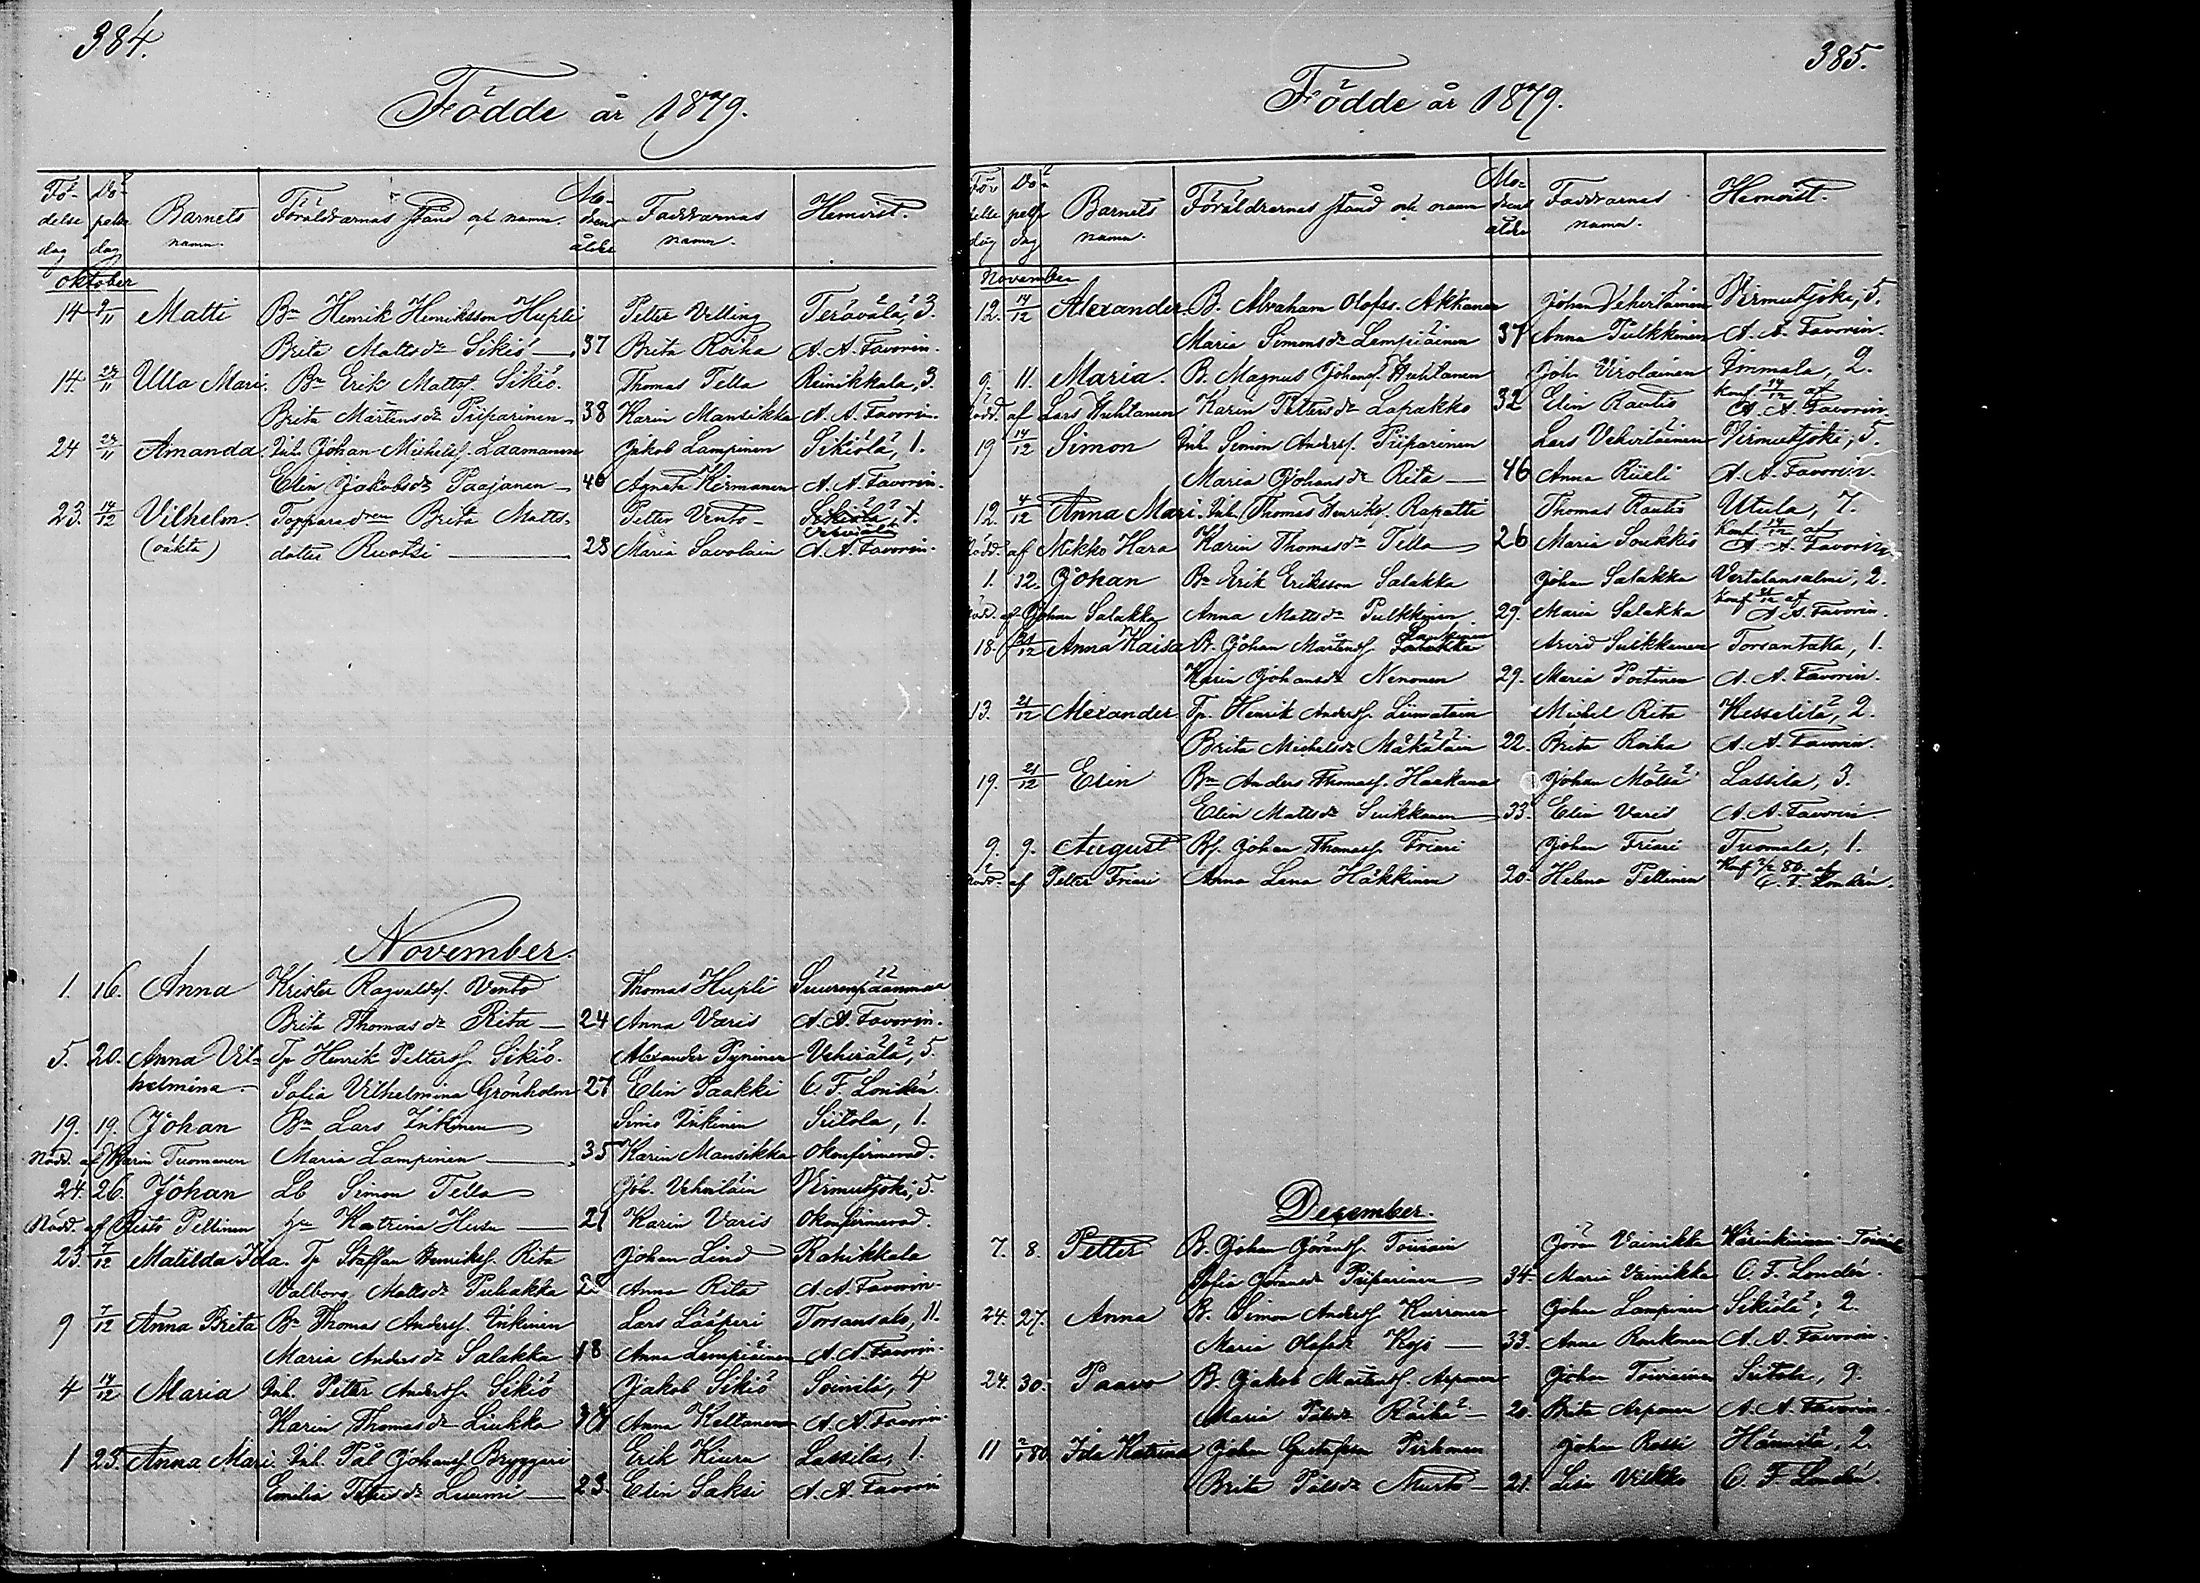 384.
Födde år 1879.
Fö- Do-
delse pelse Barnets Föräldrarnas stånd och namn. Mo- Faddrarnas Hemvist.
dag dag namn. dens ålder namn.
Oktober
14 9/11 Matti Bn Henrik Henriksson Hupli Petter Velling Terävälä, 3.
Brita Mattsdr Sikiö — 37 Brita Roiha A. A. Favorin.
14. 23/11 Ulla Mari. Bn Erik Mattsf. Sikiö. Thomas Tella Reinikkala, 3.
Brita Mårtensdr Piiparinen — 38 Karin Mansikka A. A. Favorin.
24 23/11 Amanda Inh. Johan Michelsf. Laamanen Jakob Lampinen Sikiölä, 1.
Elin Jakobsdr Paajanen — 40 Agneta Kirmanen A. A. Favorin.
23. 14/12 Vilhelm. Topparedrn Brita Matts- Petter Vento
(oäkta) dotter Ruotsi — 23 Maria Savolain A. A. Favorin.
November.
1. 16. Anna Krister Ragvaldsf. Vento Thomas Hupli Suurenpäänmaa
Brita Thomasdr Rita — 24 Anna Varis A. A. Favorin.
5. 20. Anna Vil- Tp Henrik Pettersf. Sikiö. Alexander Pyninen Vehvälä, 5.
helmina. Sofia Vilhelmina Grönholm 27 Elin Paakki C. F. Londén.
19. 19. Johan Bn Lars Inkinen Simo Inkinen Siitola, 1.
Nödd. af Karin Tuomanen Maria Lampinen — 35 Karin Mansikka Okonfirmerad.
24. 26. Johan Lb Simon Tella Joh. Vehviläin Virmutjoki, 5.
Nödd. af Risto Peltinen hu Katrina Husu — 21 Karin Varis Okonfirmerad.
23. 7/12 Matilda Ida. Tp Staffan Henriksf. Rita Johan Lind Rahikkala
Valborg Mattsdr Puhakka 28 Anna Rita A. A. Favorin.
9 7/12 Anna Brita Bn Thomas Andersf. Inkinen Lars Lääperi Torsansalo, 11.
Maria Andersdr Salakka 18 Anna Lempiäinen A. A. Favorin.
4 14/12 Maria Inh. Petter Andersf. Sikiö Jakob Sikiö Soinila, 4
Karin Thomasdr Liukka Anna Keltanen A. A. Favorin.
1 23. Anna Mari. Inh. Pål Johansf. Bryggari Erik Kiuru Lassila, 1.
Emilia Pettersdr Luumi — 23. Elin Saksi A. A. Favorin
385.
Födde år 1879.
Fö- Do-
delse pelse Barnets Föräldrarnas stånd och namn Mo- Faddrarnas Hemvist.
dag dag namn. dens ålder namn.
November
12. 14/12 Alexander B. Abraham Olofss. Akkanen Johan Vehviläinen Virmutjoki, 5.
Maria Simonsdr Lempiäinen 37 Anna Pulkkinen A. A. Favorin.
9. 11. Maria. B. Magnus Johansf. Huhtanen Joh. Virolainen Immala, 2.
Nödd. af Lars Huhtanen Karin Pettersdr Lapakko 32 Elin Rautio Konf. 14/12 af A. A. Favorin.
19 14/12 Simon Inh. Simon Andersf. Piiparinen Lars Vehviläinen Virmutjoki, 5.
Maria Johansdr Rita — 46 Anna Rüeli A. A. Favorin.
12. 4/12 Anna Mari. Inh. Thomas Henriksf. Rapatti Thomas Rautio Utula, 7.
Nödd. af Mikko Hara Karin Thomasdr Tella 26 Maria Soukkio Konf. 14/12 af A. A. Favorin
1. 12. Johan Bn Erik Eriksson Salakka Johan Salakka Vertalansalmi, 2.
Nödd. af Johan Salakka Anna Mattsdr Pulkkinen 29. Maria Salakka Konf 21/12 af A. A. Favorin.
18. 21/12 Anna Kaisa B. Johan Mårtensf. Arvid Suikkanen Torsantaka, 1.
Karin Johansdr Nenonen 29. Maria Portinen A. A. Favorin.
13. 21/12 Alexander Tp. Henrik Andersf. Liimatain Michel Rita Kesselilä, 2.
Brita Michelsdr Mäkäläin 22. Brita Roiha A. A. Favorin.
19. 21/12 Elin Bn Anders Thomasf. Haakana Johan Mälsä Lassila, 3.
Elin Mattsdr Suikkanen 33. Elin Varis A. A. Favorin
9. 9. August Bf. Johan Thomasf. Friari Johan Friari Tuomala, 1.
Nödd. af Petter Friari Anna Lena Häkkinen 20. Helena Peltinen Konf 2/2 80 af C. F. Londén.
December.
7. 8. Petter B. Johan Göransf. Toiviain Jöran Vainikka
Sofia Göransdr Piiparinen 34. Maria Vainikka C. F. Londén.
24. 27. Anna B. Simon Andersf. Kurronen Johan Lampinen Sikiölä, 2.
Maria Olofsdr Kojo — 33. Anna Ronkonen A. A. Favorin.
24. 30. Paavo B. Jakob Mårtensf. Arponen Johan Toiviainen Siitola, 9.
Maria Pålsdr Räihä — 20. Brita Arponen A. A. Favorin.
11 2/1 80. Ida Katrina Johan Gustafsson Pirhonen Johan Rossi Hännilä, 2.
Brita Pålsdr Murto — 21. Lisa Vilkko C. F. Londén.